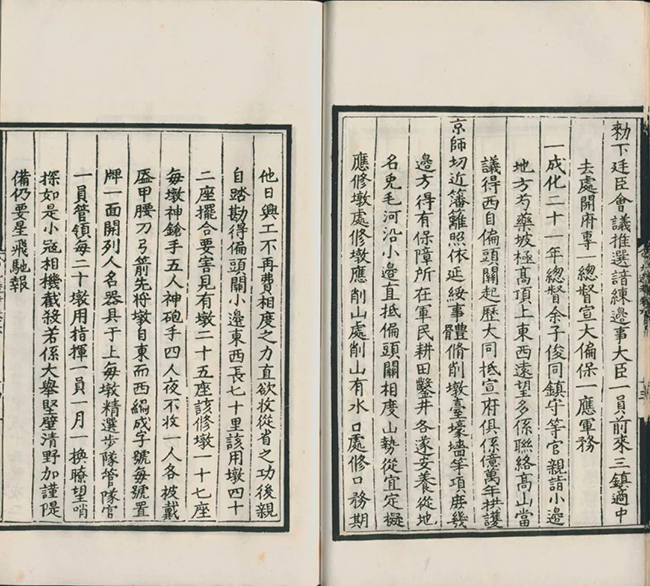 勑下廷臣會議推選諳練邊事大臣一員前來三鎮適中
去處開府專一總督宣大偏保一應軍務
一成化二十一年總督余子俊同鎮守等官親詣小邊
地方芍藥坡極高頂上東西遠望多係聯絡高山當
議得西自偏頭關起歷大同抵宣府俱係億萬年拱護
京師切近藩籬照依延綏事體脩削墩臺壕墻等項庶幾
邊方得有保障所在軍民耕田鑿井各遂安養從地
名兎毛河沿小邊直抵偏頭關相度山勢從宜定擬
應修墩處修墩應削山處削山有水口處修口務期
他日興工不再費相度之力直欲收從省之功後親
自踏勘得偏頭關小邊東西長七十里該用墩四十
二座擺合要害見有墩二十五座該修墩一十七座
每墩神鎗手五人神砲手四人夜不收一人各披戴
盔甲腰刀弓箭先將墩自東而西編成字號每號置
牌一面開列人名器具于上每墩精選步隊管隊官
一員管領每二十墩用指揮一員一月一換瞭望哨
探如是小寇相機截殺若係大舉堅壁清野加謹隄
備仍要星飛馳報